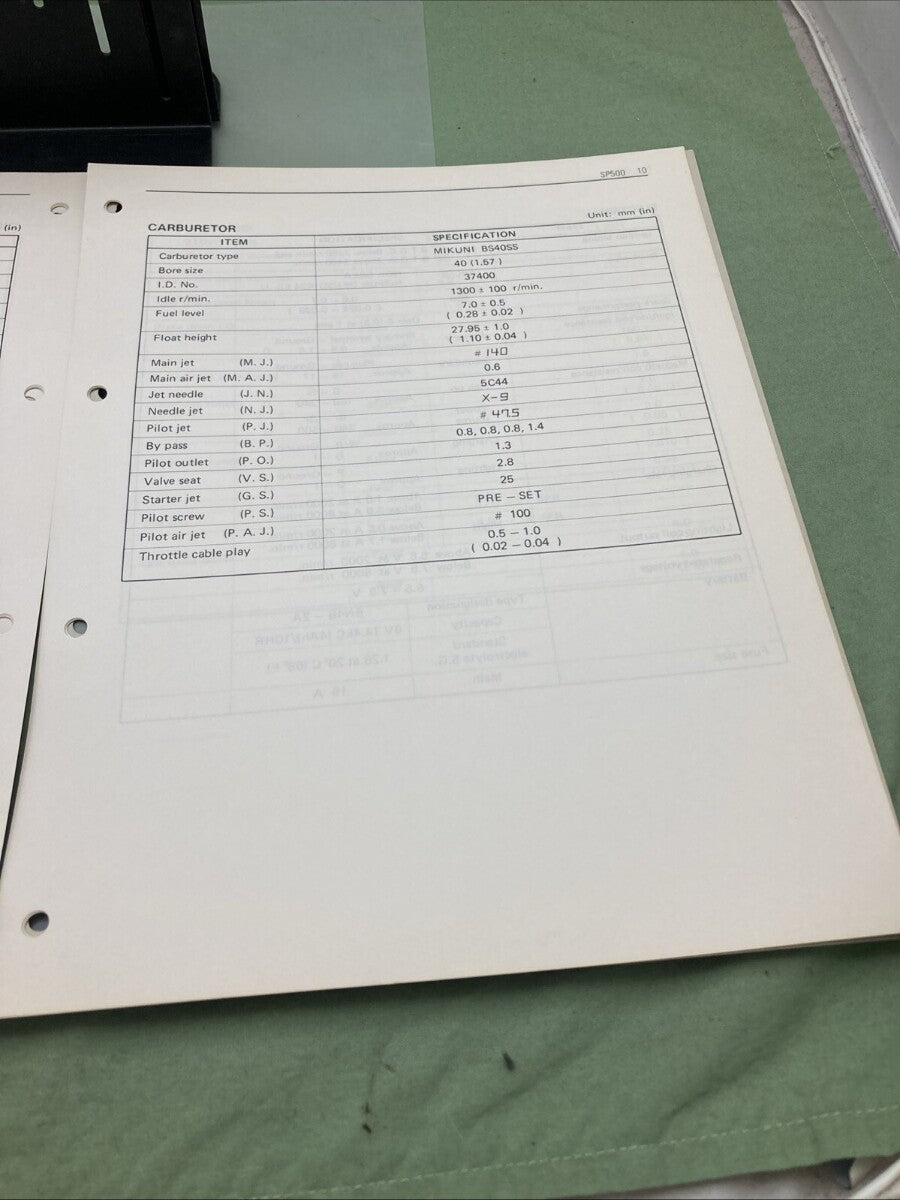 SP500 10
(in)
CARBURETOR Unit: mm (in)
ITEM SPECIFICATION
Carburetor type MIKUNI BS40SS
Bore size 40 (1.57 )
I.D. No. 37400
Idle r/min. 1300 ± 100 r/min.
Fuel level 7.0 ± 0.5
( 0.28 ± 0.02 )
Float height 27.95 ± 1.0
( 1.10 ± 0.04 )
Main jet (M. J.) # 140
Main air jet (M. A. J.) 0.6
Jet needle (J. N.) 5C44
Needle jet (N. J.) X-9
Pilot jet (P. J.) # 47.5
By pass (B. P.) 0.8, 0.8, 0.8, 1.4
Pilot outlet (P. O.) 1.3
Valve seat (V. S.) 2.8
Starter jet (G. S.) 25
Pilot screw (P. S.) PRE – SET
Pilot air jet (P. A. J.) # 100
Throttle cable play 0.5 – 1.0
( 0.02 – 0.04 )